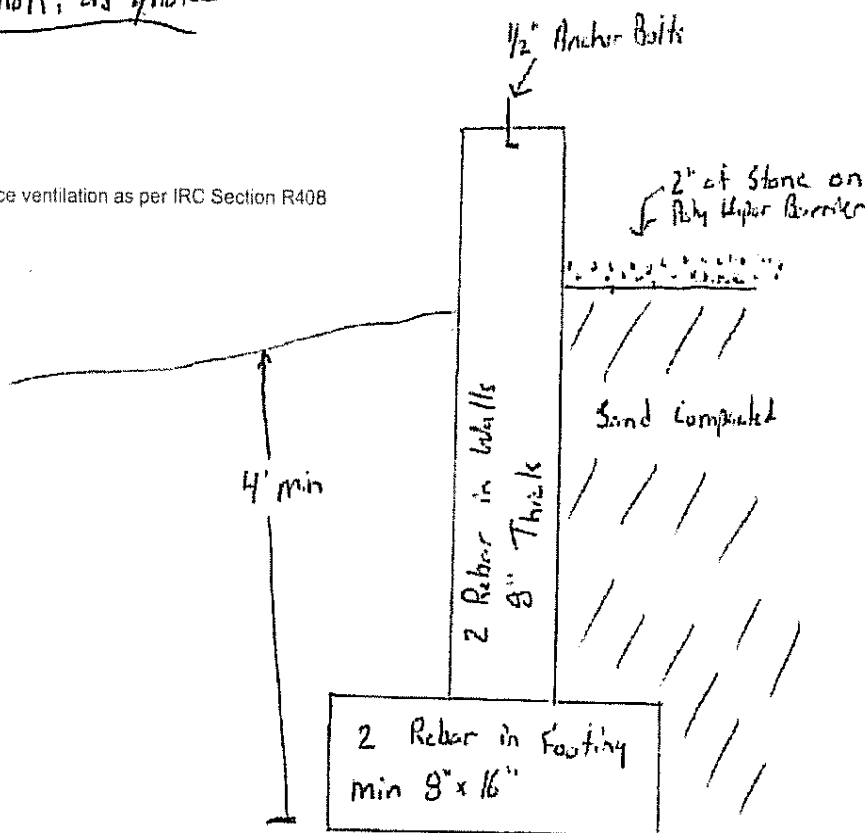 1/2" Anchor Bolts
ce ventilation as per IRC Section R408
2" of Stone on
Poly Vapor Barrier
Sand Compacted
4' min
2 Rebar in Walls
8" Thick
2 Rebar in Footing
min 8" x 16"